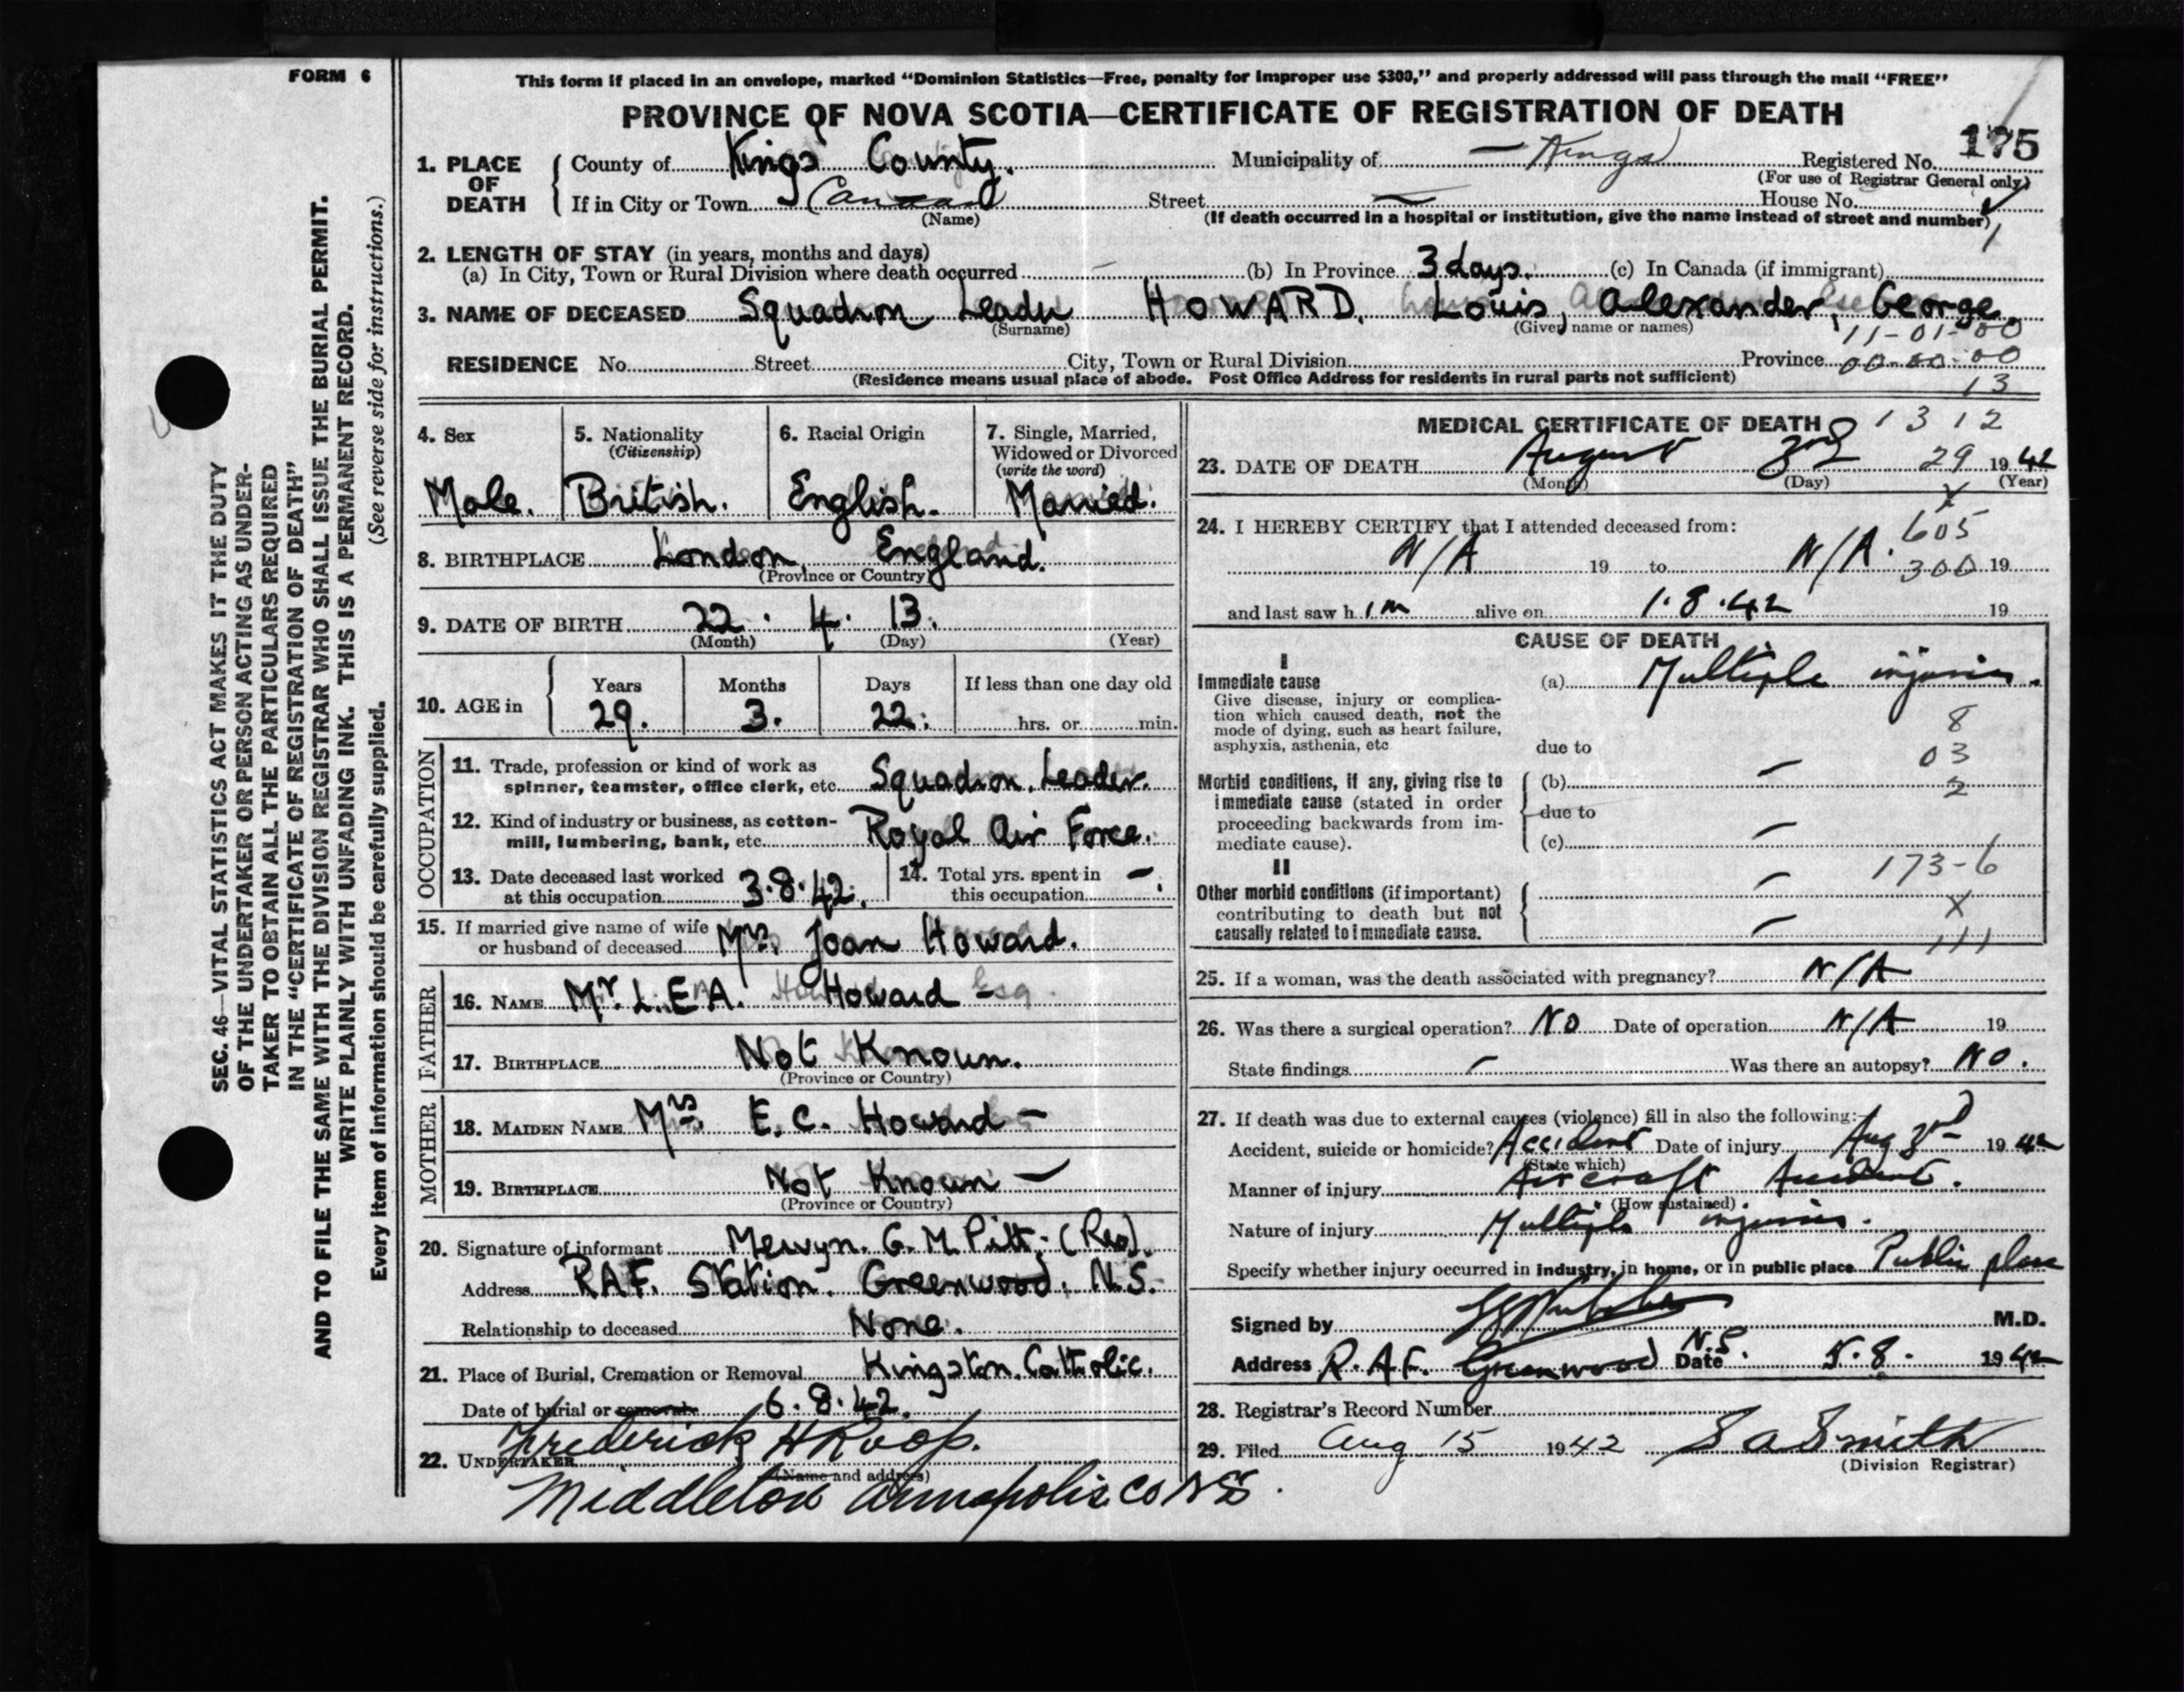 FORM 6
This form if placed in an envelope, marked “Dominion Statistics—Free, penalty for improper use $300,” and properly addressed will pass through the mail “FREE”
PROVINCE OF NOVA SCOTIA—CERTIFICATE OF REGISTRATION OF DEATH
175
1. PLACE OF DEATH County of Kings County. Municipality of — Kings Registered No.
(For use of Registrar General only)
If in City or Town Canaan Street — House No.
(Name) (If death occurred in a hospital or institution, give the name instead of street and number)
2. LENGTH OF STAY (in years, months and days)
(a) In City, Town or Rural Division where death occurred — (b) In Province 3 days. (c) In Canada (if immigrant)
3. NAME OF DECEASED Squadron Leader HOWARD. Louis, Alexander, George.
(Surname) (Given name or names)
11-01-00
RESIDENCE No. Street City, Town or Rural Division Province 00-00-00
(Residence means usual place of abode. Post Office Address for residents in rural parts not sufficient)
13
4. Sex
Male.
5. Nationality
(Citizenship)
British.
6. Racial Origin
English.
7. Single, Married, Widowed or Divorced
(write the word)
Married.
8. BIRTHPLACE London, England.
(Province or Country)
9. DATE OF BIRTH 22. 4. 13.
(Month) (Day) (Year)
10. AGE in Years Months Days If less than one day old
29. 3. 22. hrs. or min.
OCCUPATION
11. Trade, profession or kind of work as
spinner, teamster, office clerk, etc. Squadron Leader.
12. Kind of industry or business, as cotton-
mill, lumbering, bank, etc. Royal Air Force.
13. Date deceased last worked
at this occupation 3.8.42.
14. Total yrs. spent in
this occupation —.
15. If married give name of wife
or husband of deceased Mrs. Joan Howard.
FATHER
16. NAME Mr. L.E.A. Howard — Esq.
17. BIRTHPLACE Not Known.
(Province or Country)
MOTHER
18. MAIDEN NAME Mrs. E. C. Howard —
19. BIRTHPLACE Not Known —
(Province or Country)
20. Signature of informant Mervyn. G. M. Pitt; (Rev).
Address RAF. Station. Greenwood. N.S.
Relationship to deceased None.
21. Place of Burial, Cremation or Removal Kingston. Catholic.
Date of burial or removal 6.8.42.
22. UNDERTAKER Frederick H Roop.
(Name and address)
Middleton Annapolis Co N S.
MEDICAL CERTIFICATE OF DEATH
1312
23. DATE OF DEATH August 3rd 29 1942
(Month) (Day) (Year)
24. I HEREBY CERTIFY that I attended deceased from:
605
N/A 19 to N/A. 300 19
and last saw h im alive on 1.8.42 19
CAUSE OF DEATH
I
Immediate cause
Give disease, injury or complica-
tion which caused death, not the
mode of dying, such as heart failure,
asphyxia, asthenia, etc
(a) Multiple injuries.
8
due to 03
Morbid conditions, if any, giving rise to
immediate cause (stated in order
proceeding backwards from im-
mediate cause).
(b) — 2
due to
(c) —
II
173-6
Other morbid conditions (if important)
contributing to death but not
causally related to immediate cause.
—
X
—
111
25. If a woman, was the death associated with pregnancy? N/A
26. Was there a surgical operation? NO Date of operation N/A 19
State findings — Was there an autopsy? NO.
27. If death was due to external causes (violence) fill in also the following:—
Accident, suicide or homicide? Accident Date of injury Aug 3rd 1942
(State which)
Manner of injury Aircraft Accident.
(How sustained)
Nature of injury Multiple injuries.
Specify whether injury occurred in industry, in home, or in public place Public place
Signed by M.D.
Address R.A.F. Greenwood N.S. Date 5.8. 1942
28. Registrar's Record Number
29. Filed Aug 15 1942 S a Smith
(Division Registrar)
SEC. 46—VITAL STATISTICS ACT MAKES IT THE DUTY
OF THE UNDERTAKER OR PERSON ACTING AS UNDER-
TAKER TO OBTAIN ALL THE PARTICULARS REQUIRED
IN THE “CERTIFICATE OF REGISTRATION OF DEATH”
AND TO FILE THE SAME WITH THE DIVISION REGISTRAR WHO SHALL ISSUE THE BURIAL PERMIT.
WRITE PLAINLY WITH UNFADING INK. THIS IS A PERMANENT RECORD.
Every item of information should be carefully supplied. (See reverse side for instructions.)